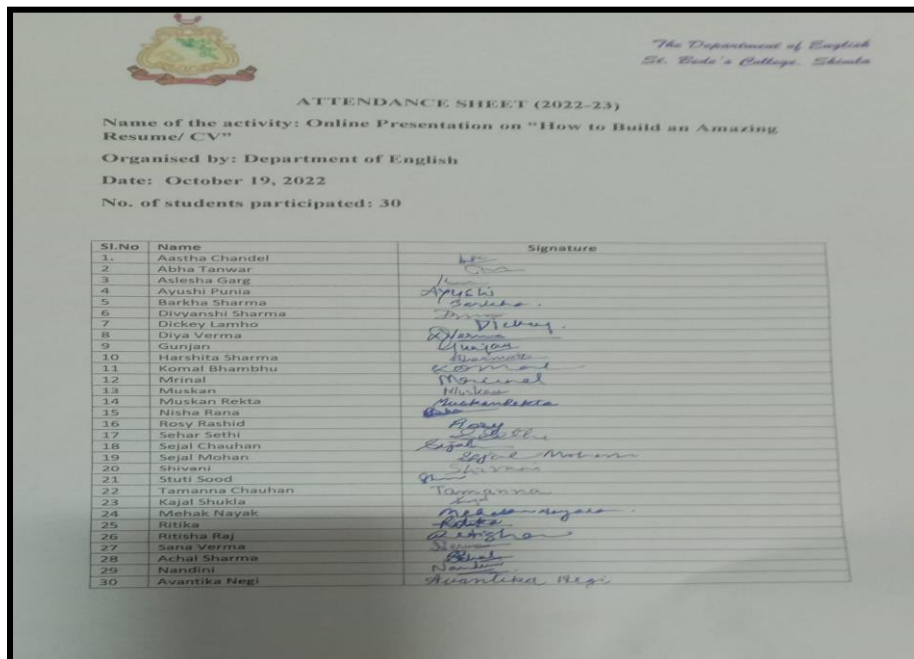 The Department of English
St. Bede's College, Shimla
ATTENDANCE SHEET (2022-23)
Name of the activity: Online Presentation on “How to Build an Amazing
Resume/ CV”
Organised by: Department of English
Date: October 19, 2022
No. of students participated: 30
Sl.No Name Signature
1. Aastha Chandel
2 Abha Tanwar
3 Aslesha Garg
4 Ayushi Punia Ayushi
5 Barkha Sharma Barkha.
6 Divyanshi Sharma
7 Dickey Lamho Dickey.
8 Diya Verma DVerma
9 Gunjan Gunjan
10 Harshita Sharma
11 Komal Bhambhu Komal
12 Mrinal
13 Muskan Muskan
14 Muskan Rekta MuskanRekta
15 Nisha Rana
16 Rosy Rashid Rosy
17 Sehar Sethi
18 Sejal Chauhan Sejal
19 Sejal Mohan Sejal Mohan
20 Shivani Shivani
21 Stuti Sood
22 Tamanna Chauhan Tamanna
23 Kajal Shukla
24 Mehak Nayak
25 Ritika Ritika
26 Ritisha Raj
27 Sana Verma
28 Achal Sharma
29 Nandini Nandini
30 Avantika Negi Avantika Negi